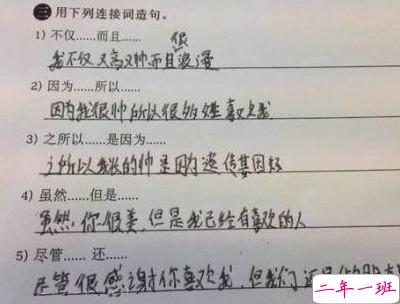 三 用下列连接词造句。
1) 不仅……而且……
很
我不仅又高又帅而且浪漫
2) 因为……所以……
因为我很帅所以很多姓喜欢我
3) 之所以……是因为……
之所以我长的帅是因为遗传基因好
4) 虽然……但是……
虽然你很美,但是我已经有喜欢的人
5) 尽管…… 还……
尽管很感谢你喜欢我,但我们还是
二年一班